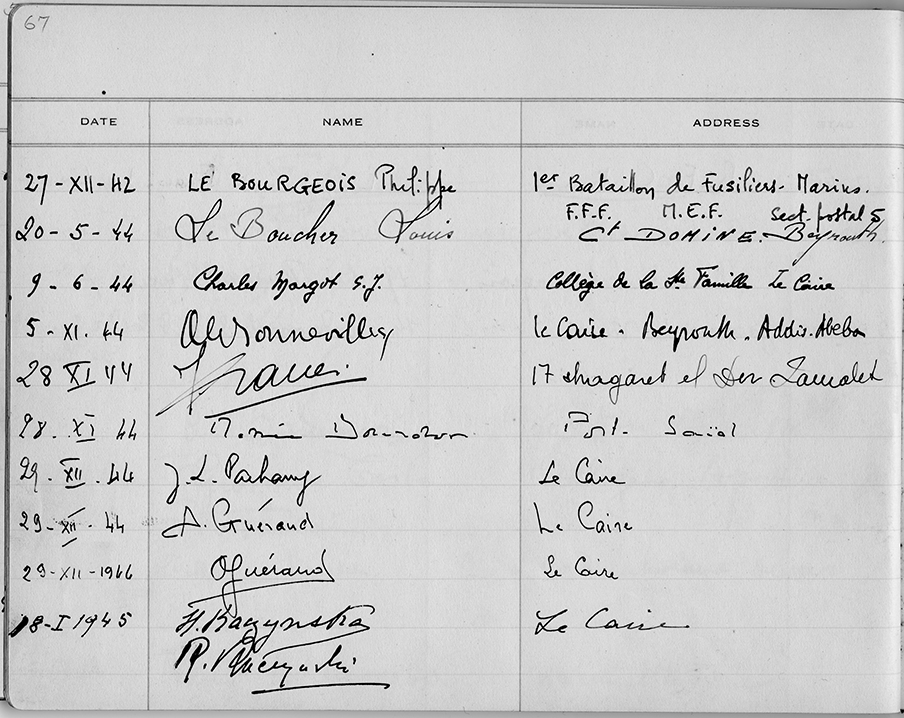 67
DATE NAME ADDRESS
27-XII-42 LE BOURGEOIS Philippe 1er Bataillon de Fusiliers-Marins.
F.F.F. M.E.F. sect. postal 5
20-5-44 Le Boucher Louis Ct DOMINE. Beyrouth.
9-6-44 Charles Margot S.J. Collège de la Ste Famille Le Caire
5-XI.44 Le Caire. Beyrouth. Addis. Abeba
28 XI 44 17 el Zamalek
28. XI 44 Port-Saïd
29. XII. 44 J. L. Le Caire
29-XII-44 A. Guérand Le Caire
29-XII-1944 O Guérand Le Caire
18-I 1945 H. Raczynska Le Caire
R.